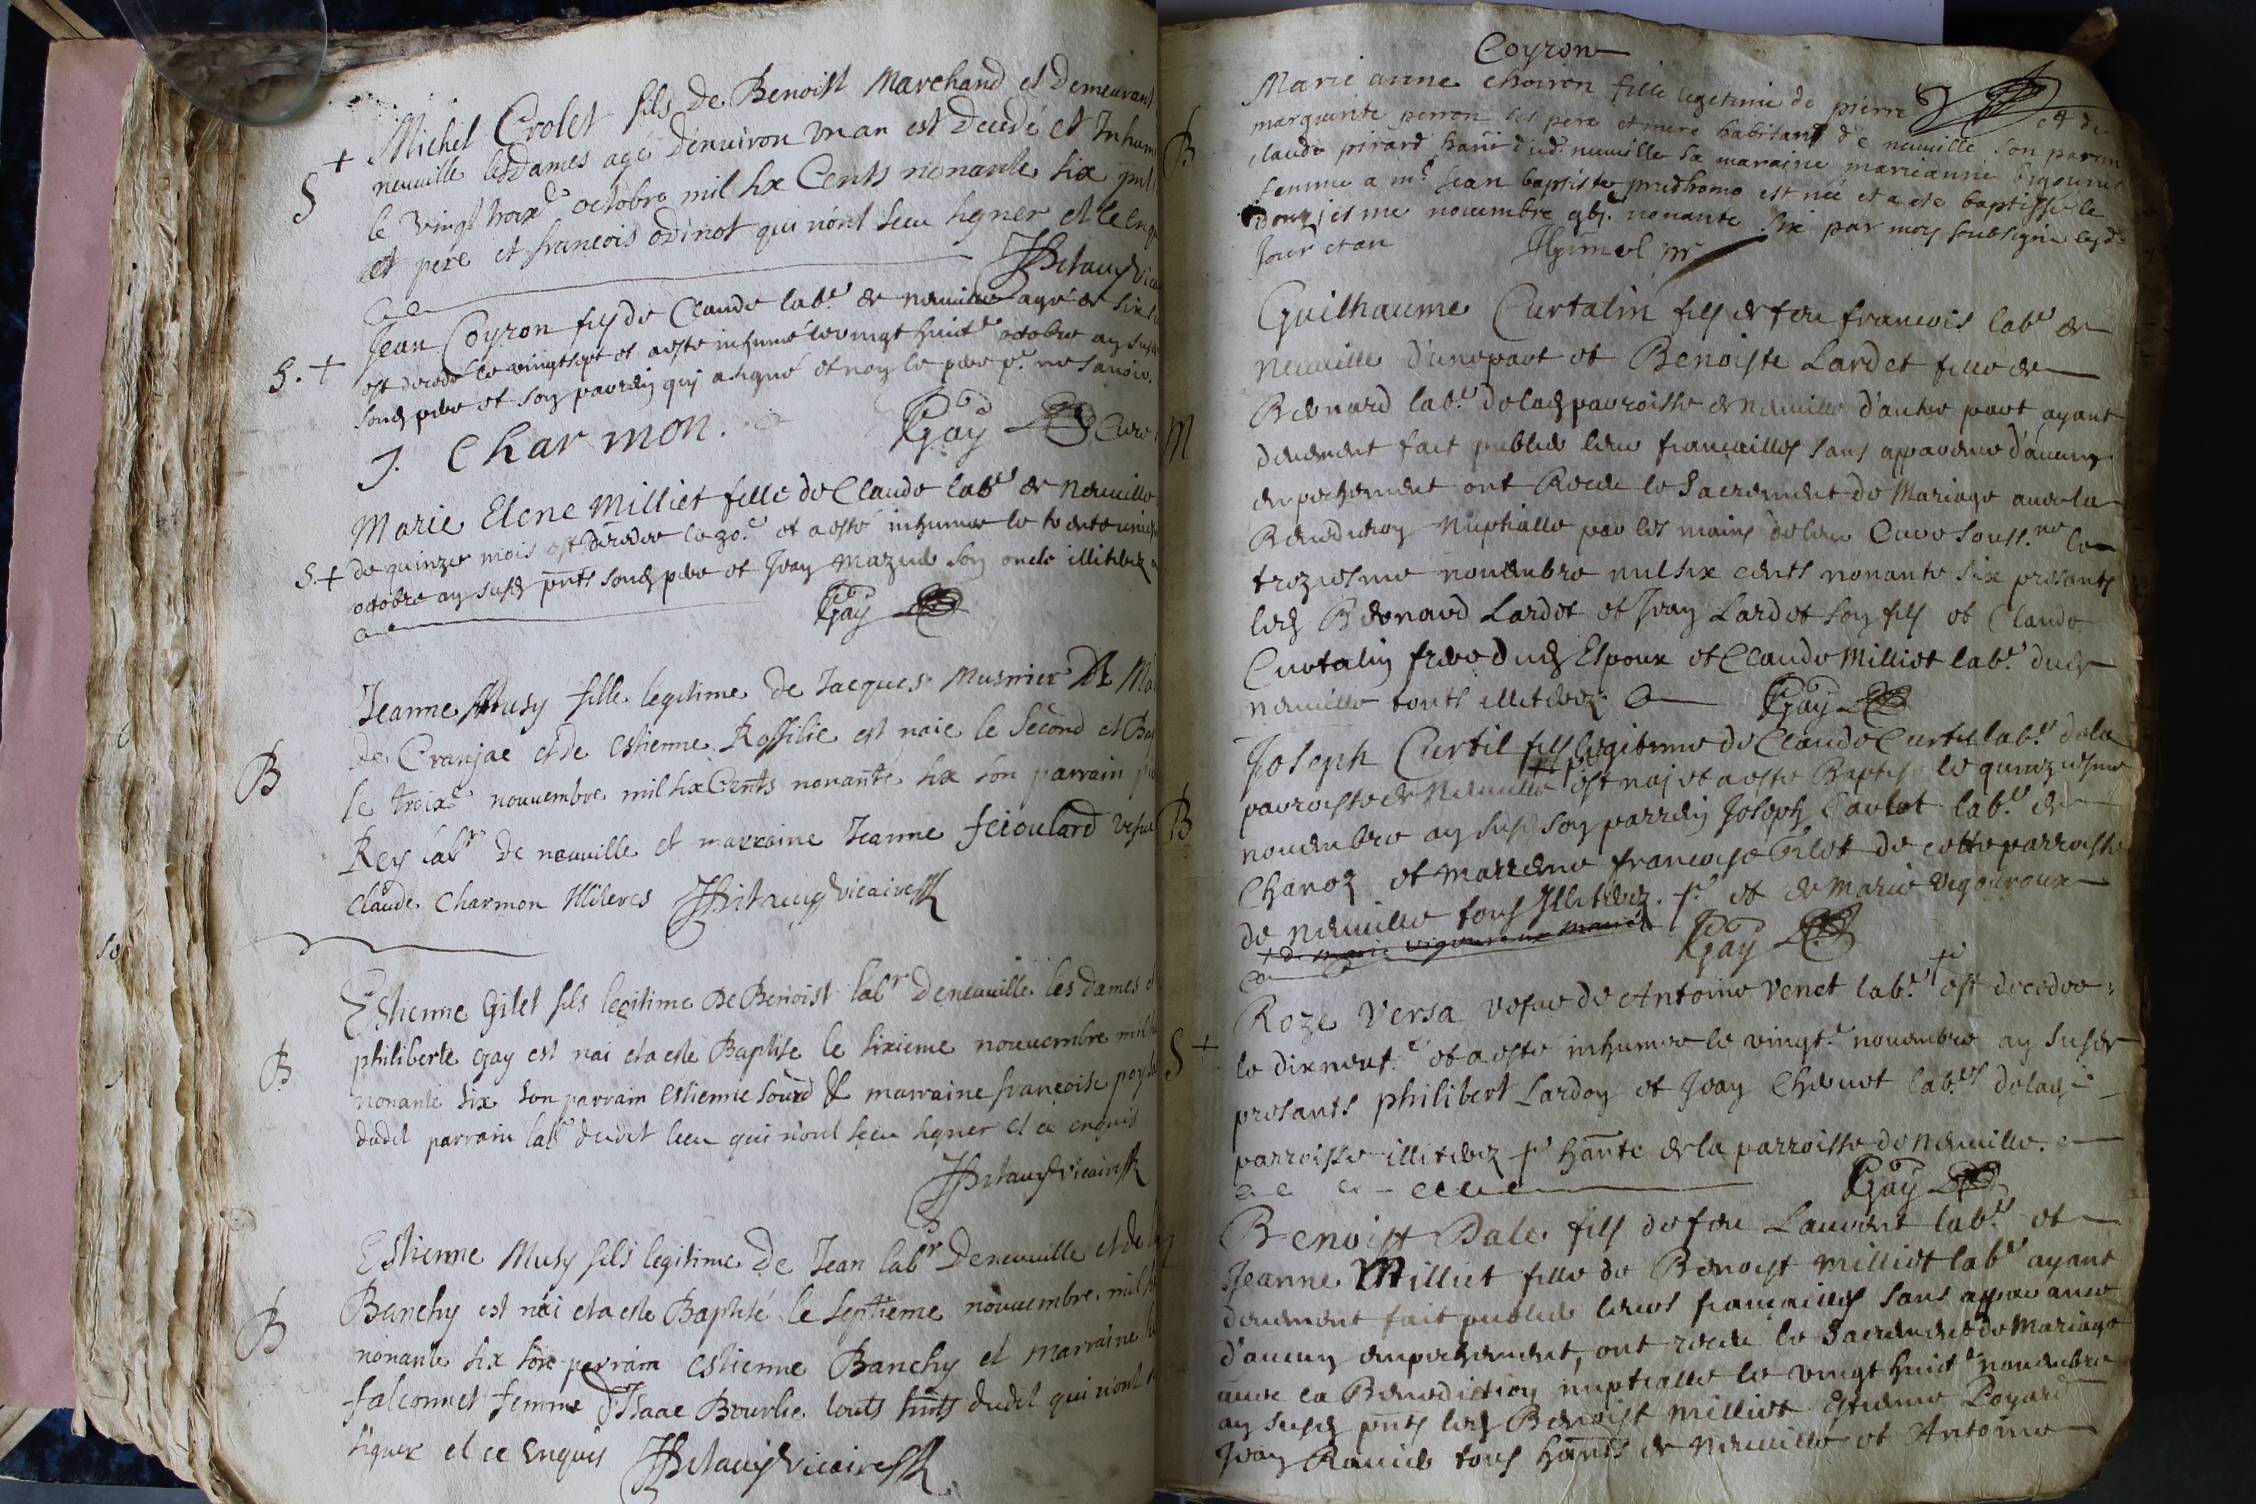 S + Michel Crolet fils de Benoist Marchand et demeurant
neuville les Dames agé denuiron un an est decedé et Inhumé
le vingt troix.e octobre mil six Cents nonante six
et pere et francois odinot qui n'ont sceu signer et ce enq
Vica
S. + Jean Coyron fils de Claude lab.r de neuville agé de six
est decedé le vingt sept et a esté inhumé le vingt huict.e octobre an susd
sond. pere et son parrein qui a signé et non le pere p.r ne savoir.
J. Charmon. Gay Curé
Marie Elene Milliet fille de Claude lab.r de Neuville
S. + de quinze mois est decedee le 30.e et a esté inhumee le trente unie
octobre an susd. pnts sond. pere et Jean Mazuir son oncle illiterez
Gay
Jeanne Musy fille legitime de Jacques Musnier
de Cranjae et de Estienne Rossilie est naie le second et Bap
B le troix.e nouuembre mil six Cents nonante six son parrain
Rey lab.r de neuville et marraine Jeanne feioulard vefue
Claude Charmon Illiteres vicaire
Estienne Gilet fils legitime De Benoist lab.r de neuuille les dames
B philiberte Gay est nai et a este Baptise le sixieme nouuembre mil
nonante six son parrain estienne sourd & marraine francoise
dudit parrain lab.r dudit lieu qui n'ont sceu signer et ce enquis
vicaire
Estienne Musy fils legitime De Jean lab.r De neuuille et de
B Banchy est nai et a este Baptisé le septieme nouuembre mil
nonante six son parrain estienne Banchy et marraine
falconnet femme d'Isaac Bourlie touts hnts dudit qui n'ont
signer et ce enquis vicaire
Coyron
Marie anne choiron fille legetimie de pierre et de
B marguerite perron ses pere et mere habitant de neuuille son parrin
claude pirard dud. neuuille sa maraine marieanne
femme a m.e Jean baptiste prudhomo est née et a ete baptisse le
douziesme nouembre nonante six par moy soubsigné
Jour et an
Guilhaume Curtalin fils de feu francois lab.r de
neuuille d'une part et Benoiste Lardet fille de
Bernard lab.r de lad. parroisse de neuville d'autre part ayant
M deuement fait publier leur fiançailles sans apparence d'aucung
empechement ont Receu le Sacrement de Mariage auec la
Benediction Nuptialle par les mains de leur Curé souss.né le
treziesme nouembre mil six cents nonante six presants
led. Bernard Lardet et Jean Lardet son fils et Claude
Curtalin frere dud. Espoux et Claude Milliet lab.r dud.
neuville touts illiterez. Gay
Joseph Curtil fils legitime de Claude Curtil lab.r de la
parroisse de Neuville est nai et a esté Baptisé le quinziesme
B nouembre an susd. son parrein Joseph Carlot lab.r de
Chanoz et marrene francoise Gilet de cette parroisse
de neuville tous Illiterez. et de Marie Vigouroux
Gay
Roze Versa vefue de Antoine Venet lab.r est decedee
S + le dixneuf.e et a esté inhumee le vingt.e nouembre an susd.
presants philibert Lardoy et Jean Chevet lab.rs de lad.
parroisse illiterez hante de la parroisse de neuville.
Gay
Benoist Dale fils de feu Laurent lab.r et
Jeanne Milliet fille de Benoist Milliet lab.r ayant
deuement fait publier leurs fiançailles sans apparance
d'aucun empechement, ont receu le Sacrement de Mariage
auec la Benediction nuptialle le vingt huict.e nouembre
an susd. pnts led. Benoist Milliet Estienne Poyard
Jean Ravier tous hants de Neuville et Antoine